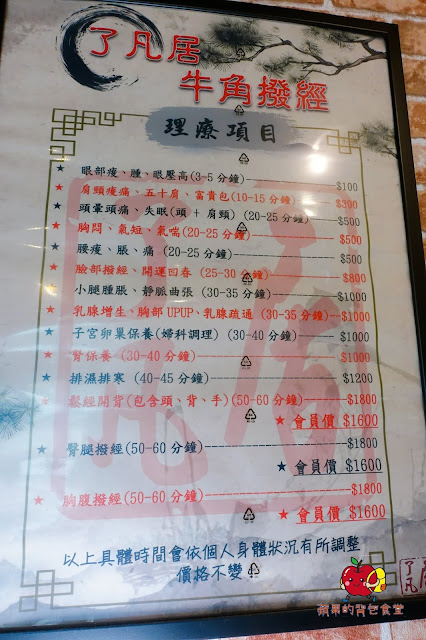 了凡居
牛角撥經
理療項目
★ 眼部痠、腫、眼壓高(3-5分鐘)--------$100
★ 肩頸痠痛、五十肩、富貴包(10-15分鐘)--------$300
★ 頭暈頭痛、失眠(頭+肩頸) (20-25分鐘)--------$500
★ 胸悶、氣短、氣喘(20-25分鐘)--------$500
★ 腰痠、脹、痛 (20-25分鐘)--------$500
★ 臉部撥經、開運回春 (25-30分鐘)--------$800
★ 小腿腫脹、靜脈曲張 (30-35分鐘)--------$1000
★ 乳腺增生、胸部UPUP、乳腺疏通 (30-35分鐘)--------$1000
★ 子宮卵巢保養(婦科調理) (30-40分鐘)--------$1000
★ 腎保養 (30-40分鐘)--------$1000
★ 排濕排寒 (40-45分鐘)--------$1200
★ 鬆經開背(包含頭、背、手)(50-60分鐘)--------$1800
★ 會員價 $1600
★ 臀腿撥經(50-60分鐘)--------$1800
★ 會員價 $1600
★ 胸腹撥經(50-60分鐘)--------$1800
★ 會員價 $1600
以上具體時間會依個人身體狀況有所調整
價格不變
了凡居
蘋果的背包食堂